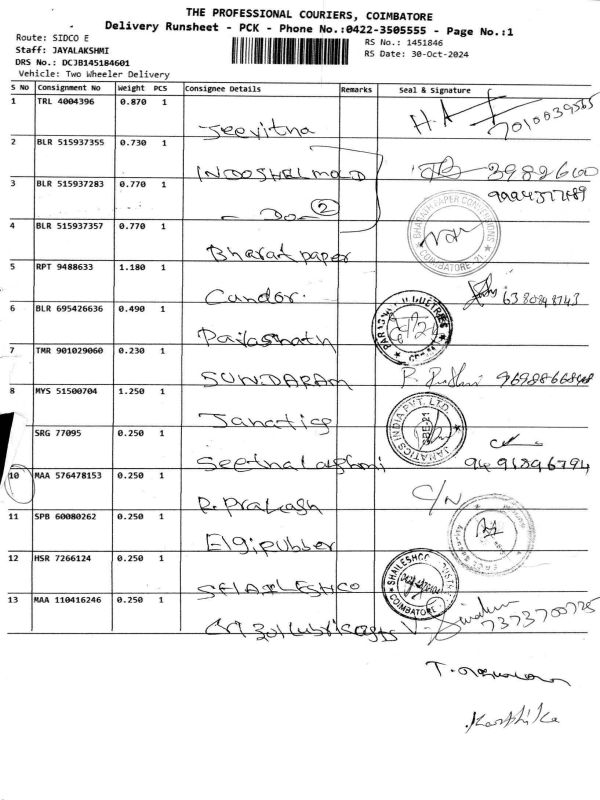 THE PROFESSIONAL COURIERS, COIMBATORE
Delivery Runsheet - PCK - Phone No.:0422-3505555 - Page No.:1
Route: SIDCO E
RS No.: 1451846
Staff: JAYALAKSHMI
RS Date: 30-Oct-2024
DRS No.: DCJB145184601
Vehicle: Two Wheeler Delivery
S No Consignment No Weight PCS Consignee Details Remarks Seal & Signature
1 TRL 4004396 0.870 1
Jeevitha H.A 7010039565
2 BLR 515937355 0.730 1
INDOSHELMOLD 3982600
3 BLR 515937283 0.770 1
- Do - 2
4 BLR 515937357 0.770 1
Bharat paper BHARATH PAPER CONVERSIONS COIMBATORE-21
5 RPT 9488633 1.180 1
Candor. 6380848743
6 BLR 695426636 0.490 1
7 TMR 901029060 0.230 1
SUNDARAM
8 MYS 51500704 1.250 1
Janatics JANATICS INDIA PVT. LTD. CBE-21
SRG 77095 0.250 1
Seethalakshmi 9491896794
10 MAA 576478153 0.250 1
R. Prakash C/N
11 SPB 60080262 0.250 1
Elgirubber
12 HSR 7266124 0.250 1
SHAILESHCO COIMBATORE
13 MAA 110416246 0.250 1
7373700725
Karthika